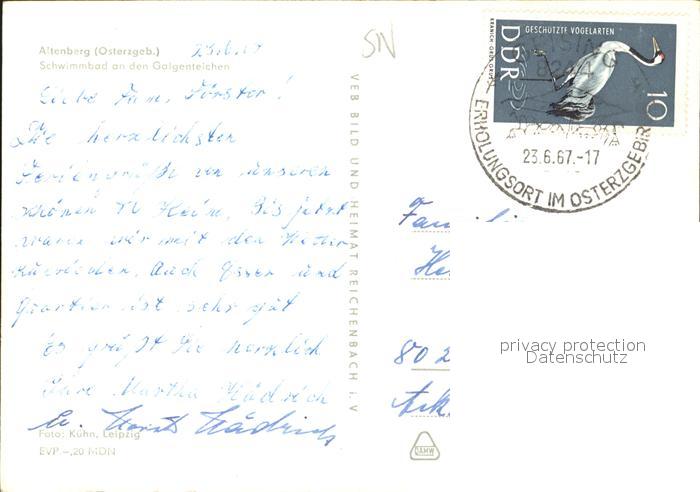 Altenberg (Osterzgeb.) 23.6.67
Schwimmbad an den Galgenteichen
Liebe Fam. Förster!
Die herzlichsten
Feriengrüße von unseren
schönen Heim. Bis jetzt
waren wir mit den Wetter
zufrieden. Auch Essen und
Quartier ist sehr gut
Es grüßt Sie herzlich
Ihre Martha Hädrich
u. Horst Hädrich
Foto: Kühn, Leipzig
EVP -,20 MDN
VEB BILD UND HEIMAT REICHENBACH i. V
GESCHÜTZTE VOGELARTEN
KRANICH
DDR
10
GEISING
8244
23.6.67.-17
ERHOLUNGSORT IM OSTERZGEBIR
Famili
He
802
privacy protection
Datenschutz
DAMW